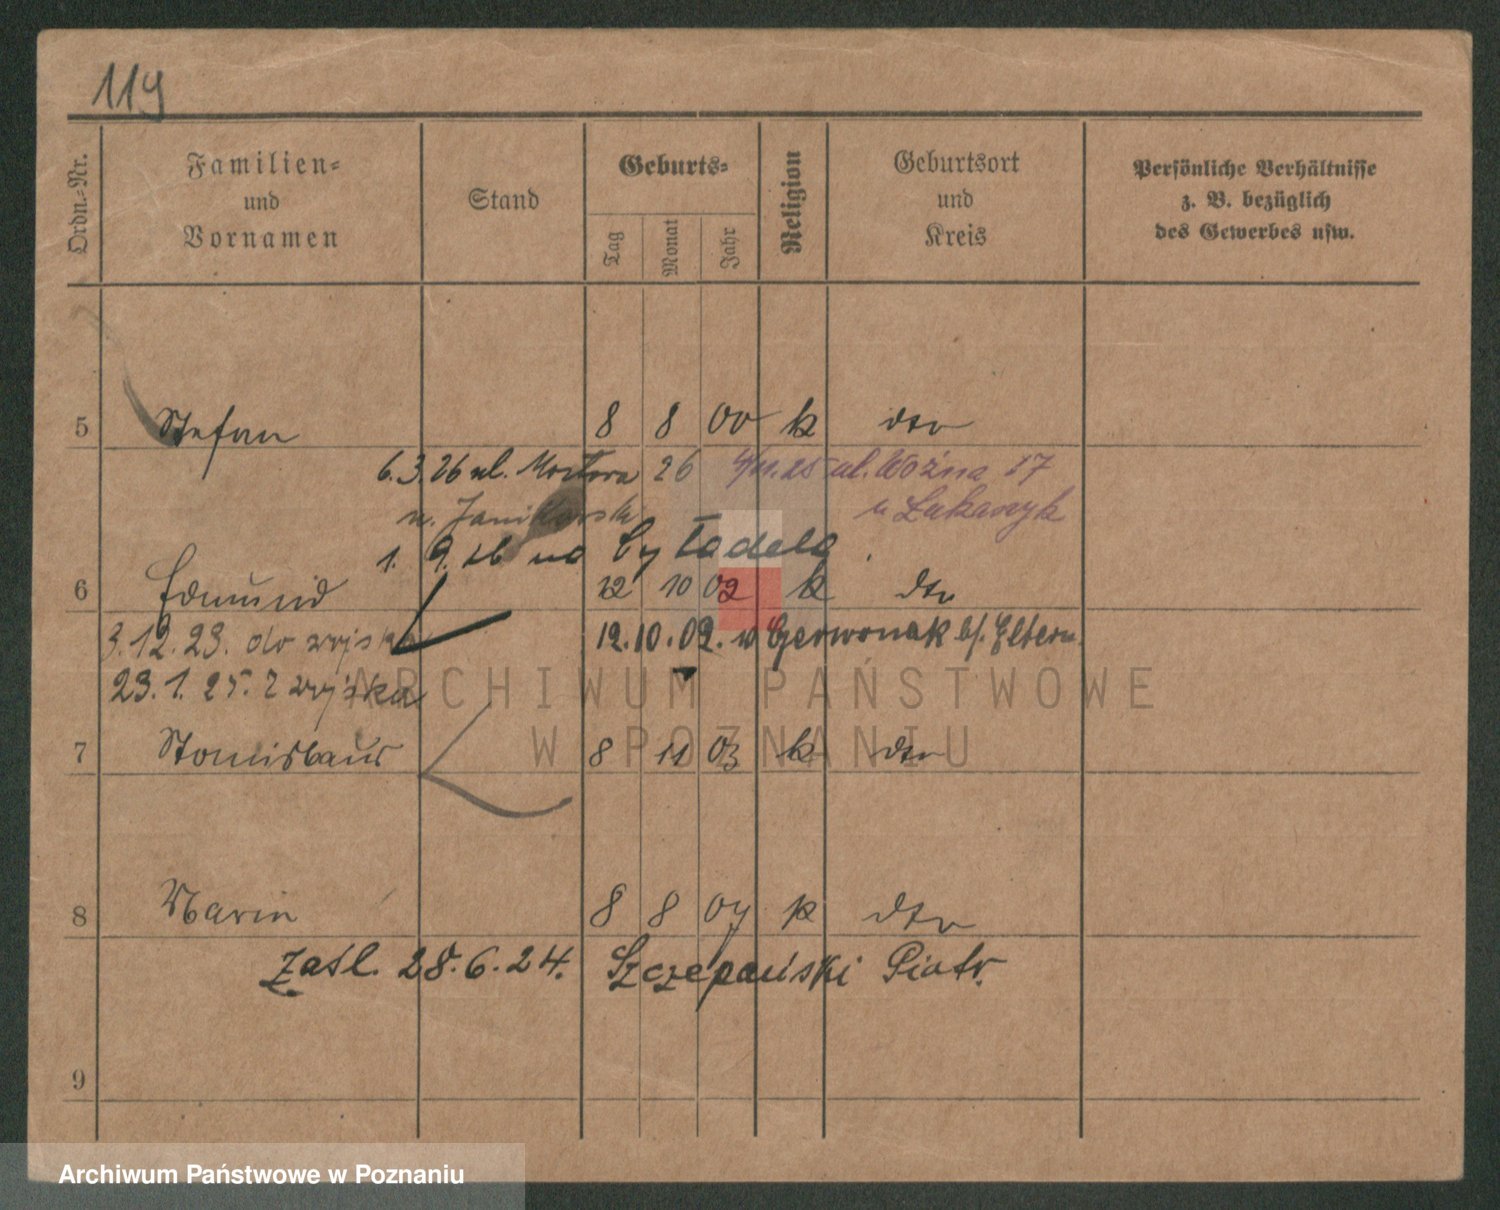 119
Ordn.-Nr.
Familien-
und
Vornamen
Stand
Geburts-
Tag
Monat
Jahr
Religion
Geburtsort
und
Kreis
Persönliche Verhältnisse
z. B. bezüglich
des Gewerbes usw.
5 Stefan 8 8 00 k dto
6.3.26 ul. 26 ul. Woźna 17
u Łukaszyk
1. 9. 26 na Cytadelą
6 Edmund 12 10 02 k dto
3.12.23. do wojska 12.10.02. w Czerwonak b/. Eltern.
23.1.25. z wojska
7 Stanislaus 8 11 03 k dto
8 Marin 8 8 07 k dto
Zaśl. 28.6.24. Szczepański Piotr.
9
ARCHIWUM PAŃSTWOWE
W POZNANIU
Archiwum Państwowe w Poznaniu